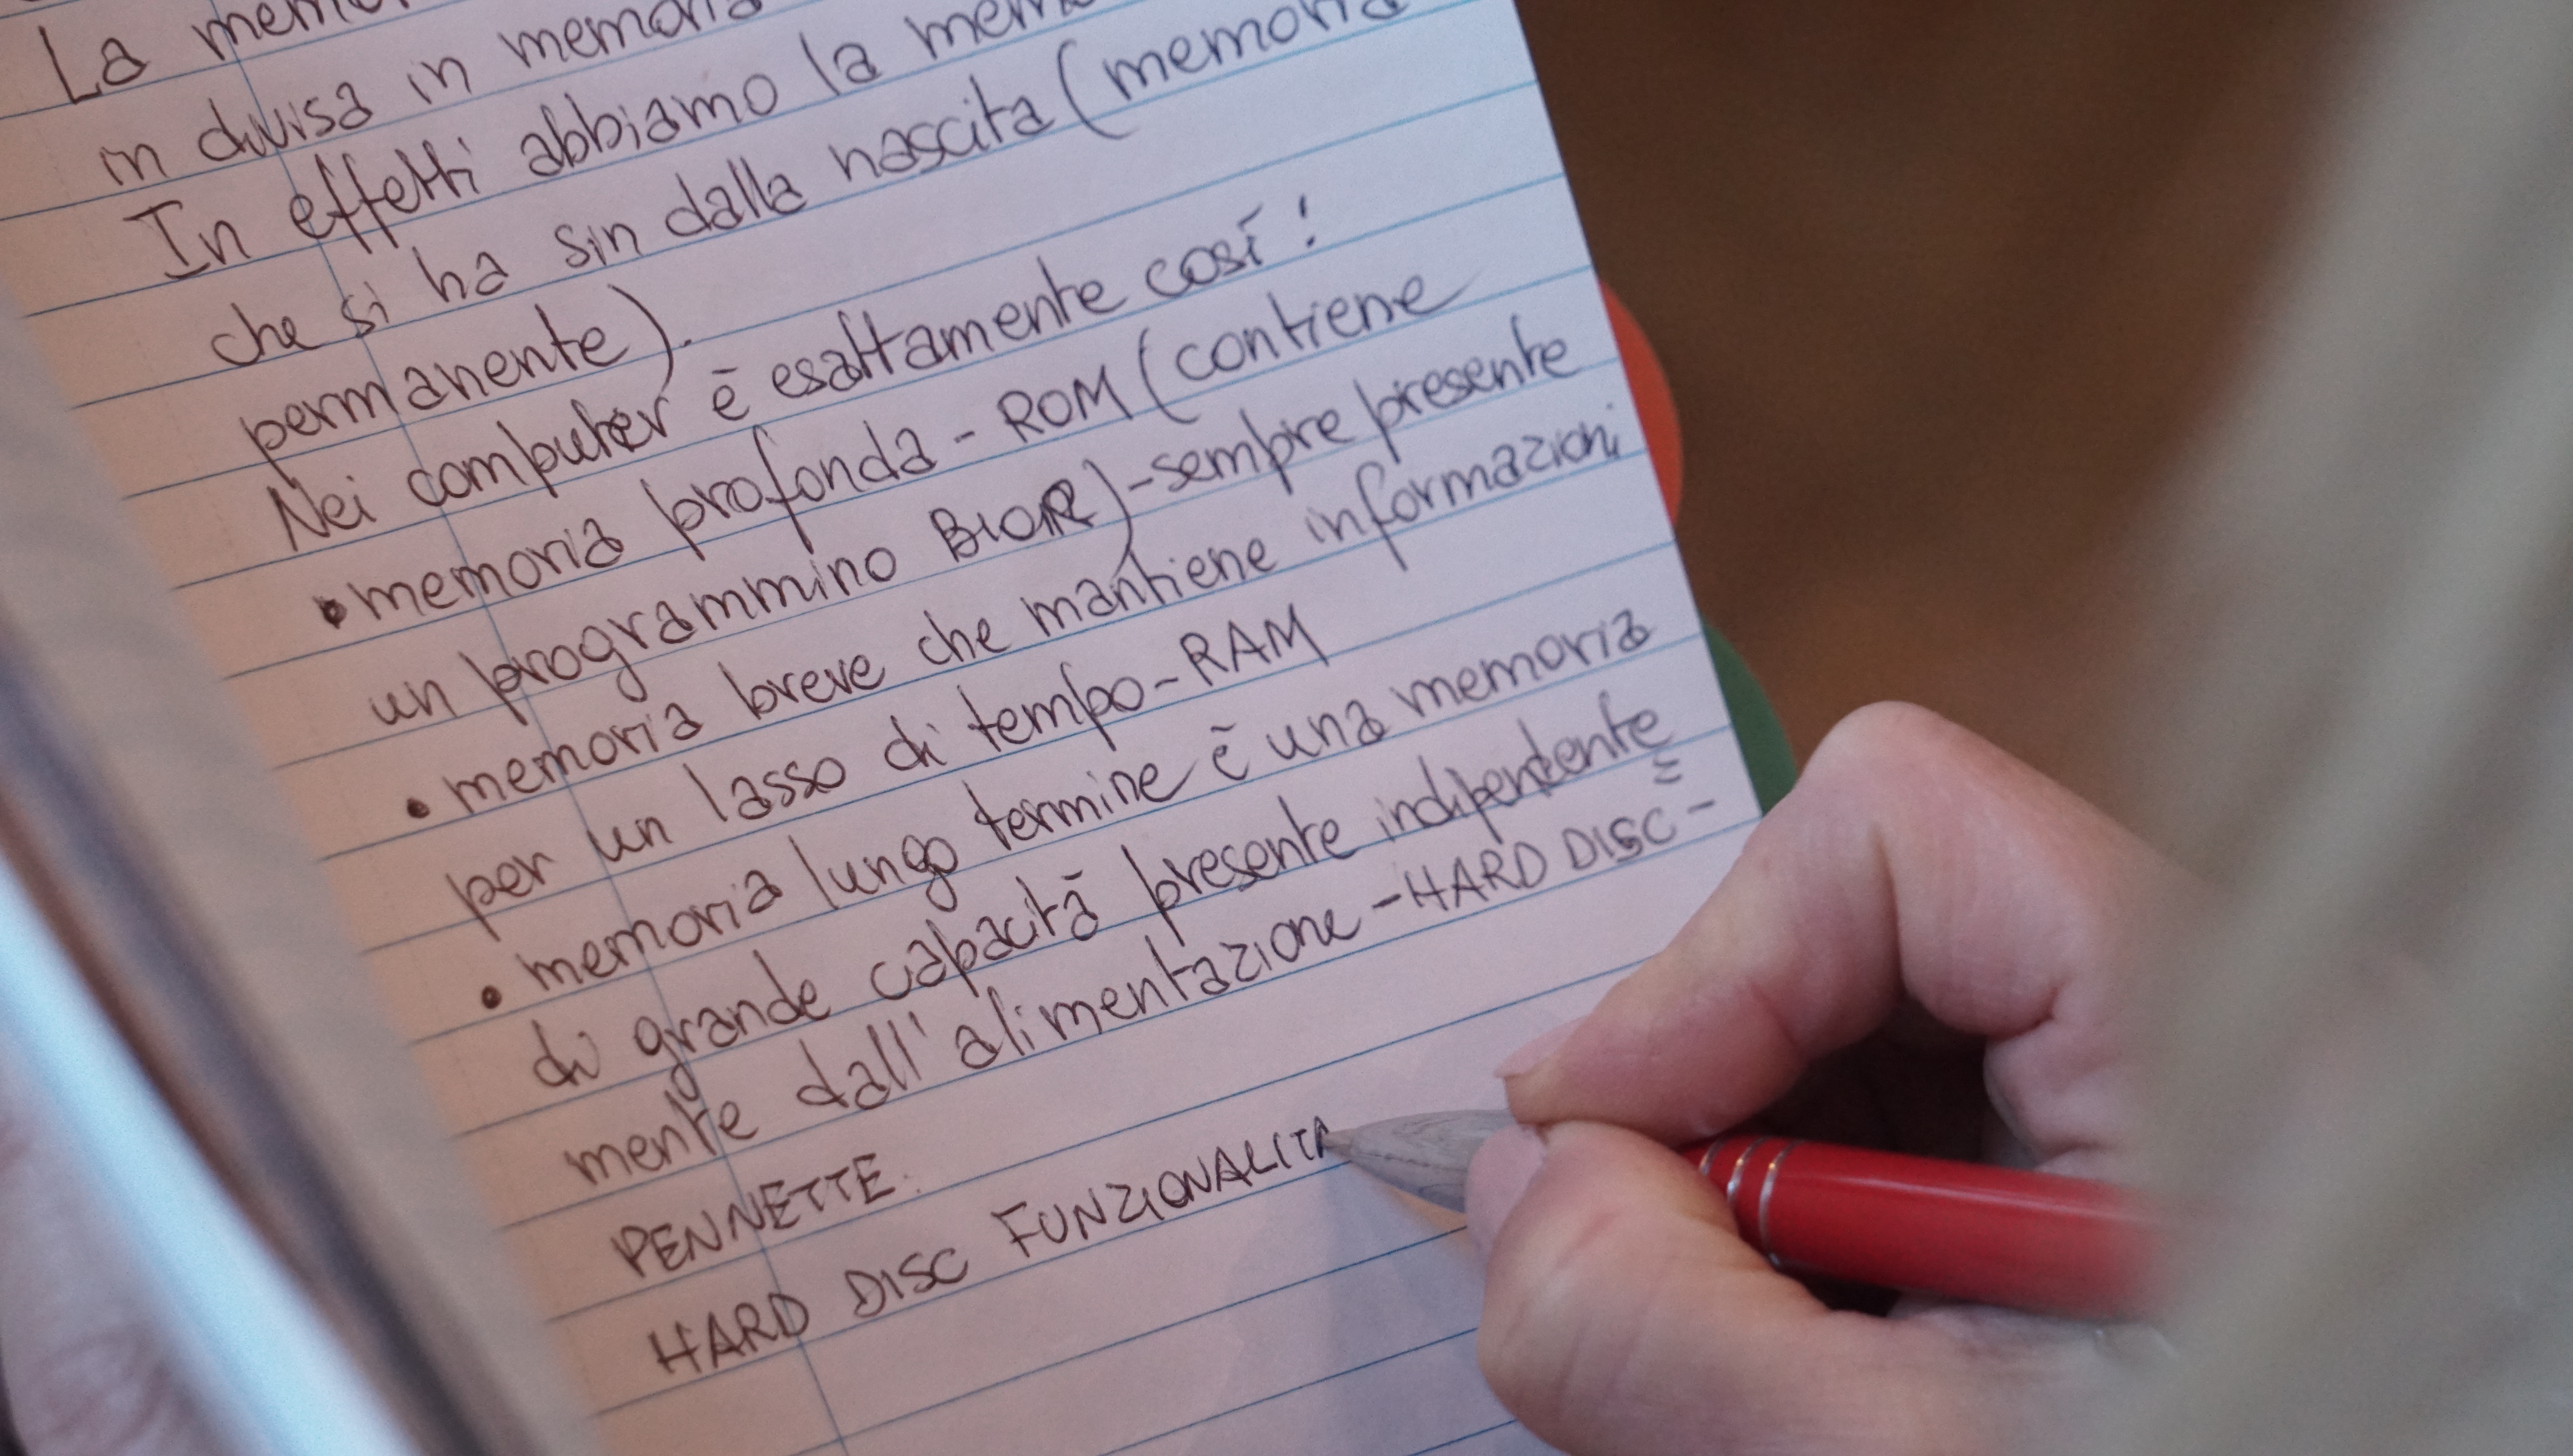 La
in divisa in memoria
In effetti abbiamo la
che si ha sin dalla nascita (memoria
permanente).
Nei computer è esattamente così!
• memoria profonda - ROM (contiene
un programmino BIOR) - sempre presente
• memoria breve che mantiene informazioni
per un lasso di tempo - RAM
• memoria lungo termine è una memoria
di grande capacità presente indipendente=
mente dall'alimentazione - HARD DISC -
PENNETTE.
HARD DISC FUNZIONALITA